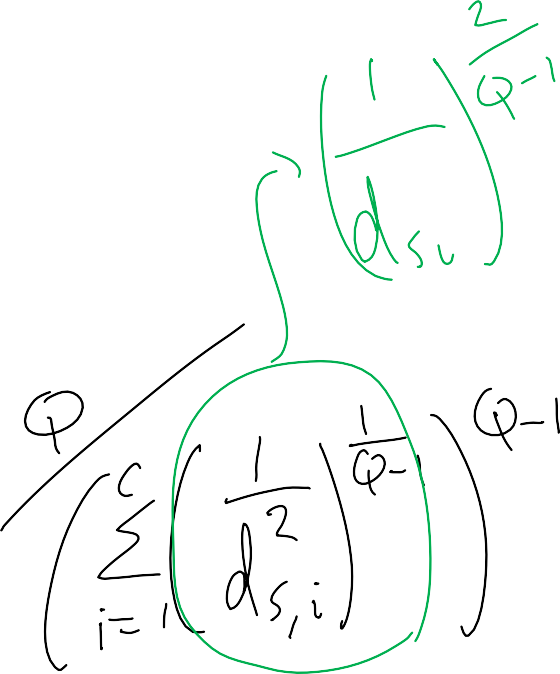 (1/d_{si})^{2/(Q-1)}
Q / (\sum_{i=1}^{C} (1/d^2_{s,i})^{1/(Q-1)})^{Q-1}